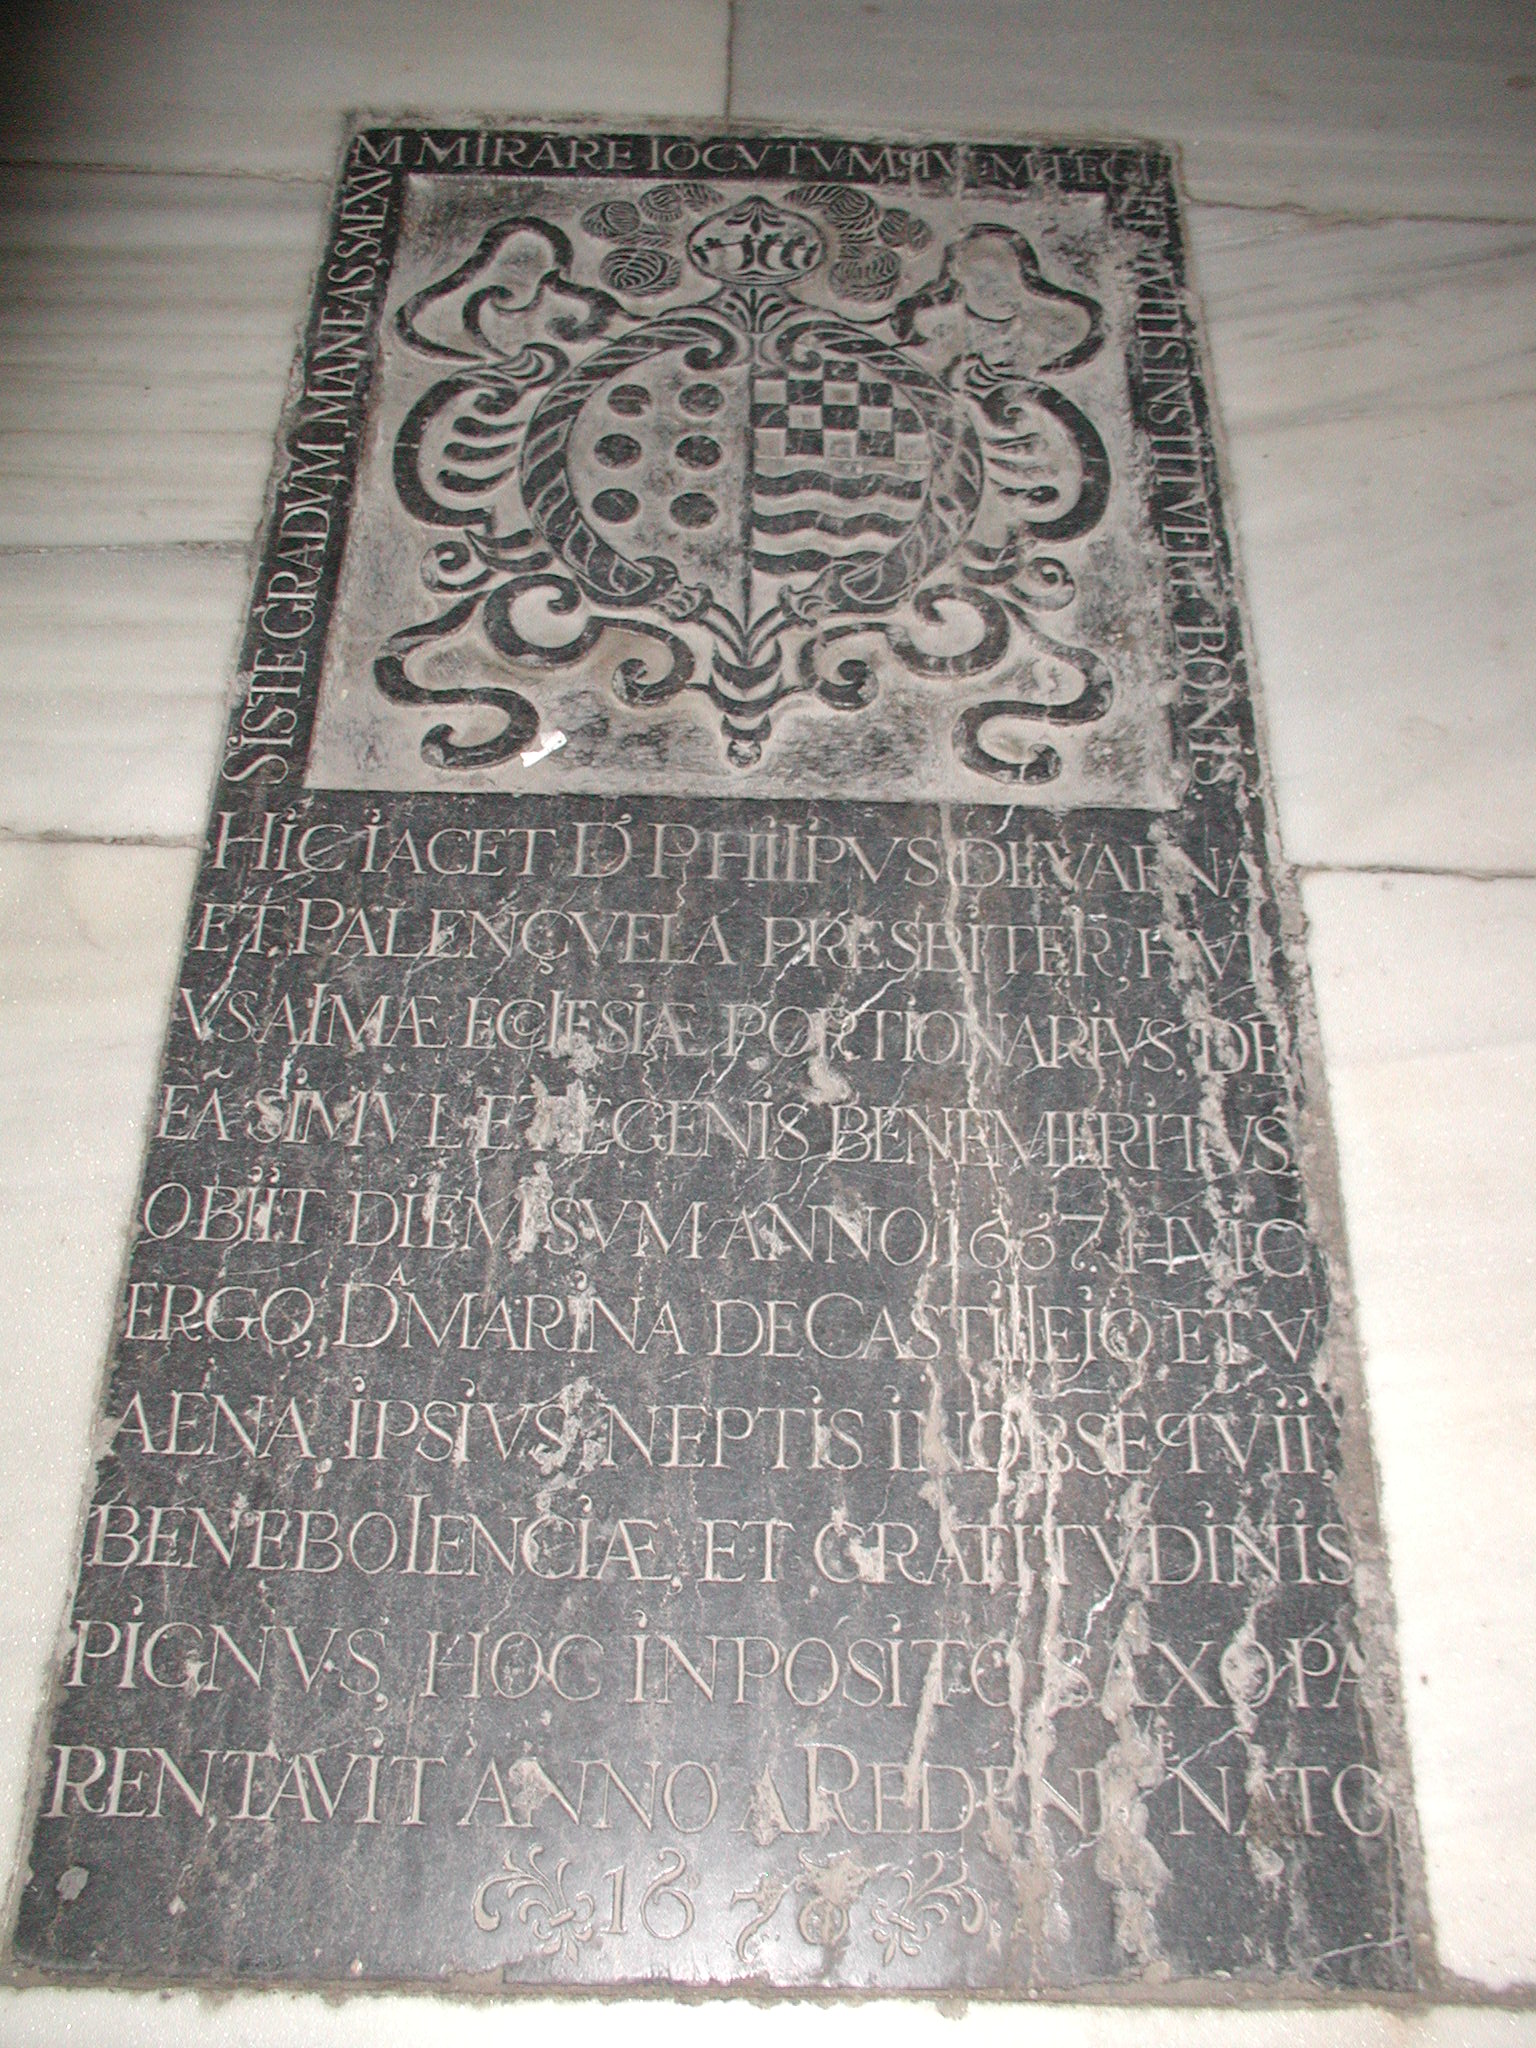 SISTE GRADVM, MANEAS, SAEXV
M MIRARE LOCVTVM QVEM TEGIT
INSTITVERE BONIS
HIC IACET D. PHILIPVS DE VAENA
ET PALENÇVELA PRESBITER, HVI
VS ALMÆ ECLESIÆ PORTIONARIVS, DE
EA SIMVL ET EGENIS BENEMERITVS
OBIIT DIEM SVM ANNO 1667. HVIC
ERGO, Dᴬ MARINA DE CASTILLEJO ET V
AENA, IPSIVS NEPTIS IN OBSEQVII,
BENEBOLENCIÆ, ET GRATITVDINIS
PIGNVS, HOC INPOSITO SAXO PA
RENTAVIT ANNO A REDEM NATO
16